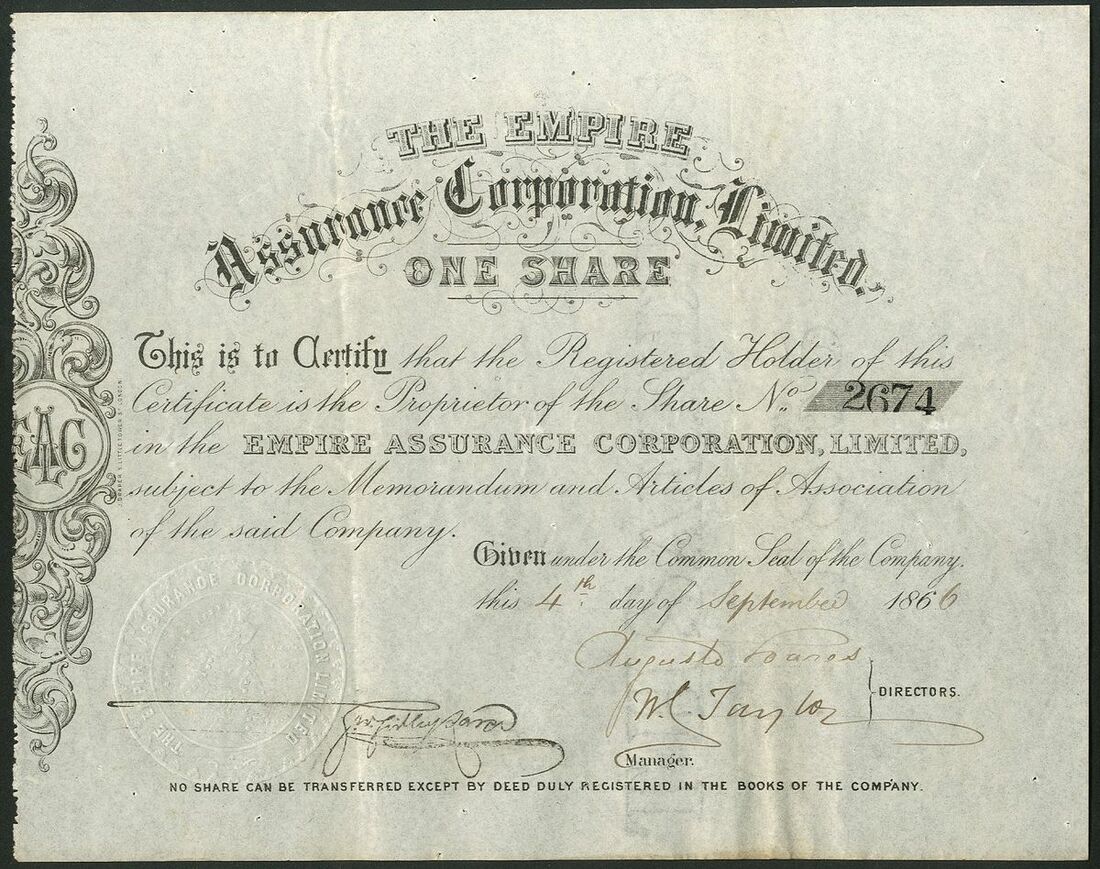 THE EMPIRE
Assurance Corporation, Limited.
ONE SHARE
This is to Certify that the Registered Holder of this
Certificate is the Proprietor of the Share No. 2674
in the EMPIRE ASSURANCE CORPORATION, LIMITED,
subject to the Memorandum and Articles of Association
of the said Company.
Given under the Common Seal of the Company.
this 4th day of September 1866
Augusto
W. Taylor
DIRECTORS.
Manager.
NO SHARE CAN BE TRANSFERRED EXCEPT BY DEED DULY REGISTERED IN THE BOOKS OF THE COMPANY.
EAC
THE EMPIRE ASSURANCE CORPORATION LIMITED
LONDON